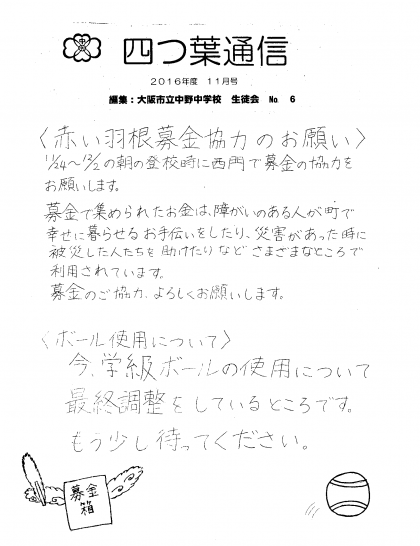 四つ葉通信
2016年度 11月号
編集：大阪市立中野中学校 生徒会 No 6
〈赤い羽根募金協力のお願い〉
11/24～12/2の朝の登校時に西門で募金の協力を
お願いします。
募金で集められたお金は、障がいのある人が町で
幸せに暮らせるお手伝いをしたり、災害があった時に
被災した人たちを助けたりなどさまざまなところで
利用されています。
募金のご協力、よろしくお願いします。
〈ボール使用について〉
今、学級ボールの使用について
最終調整をしているところです。
もう少し待ってください。
募金
箱